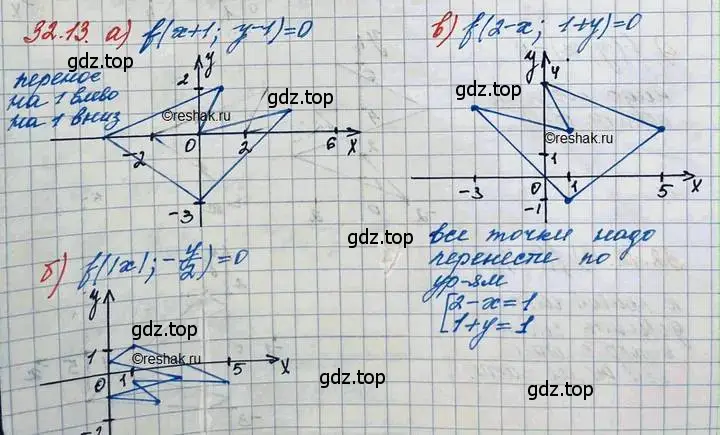 32.13. а) f(x+1; y-1)=0
перенос
на 1 влево
на 1 вниз
y
2
gdz.top
©reshak.ru
-2
0
2
6
x
-3
в) f(2-x; 1+y)=0
y
4
gdz.top
©reshak.ru
1
-3
0
1
5
x
-1
все точки надо
перенести по
ур-ям
[2-x=1
1+y=1
gdz.top
б) f(|x|; -y/2)=0
y
gdz.top
1
©reshak.ru
5
x
0
1
gdz.top
gdz.top